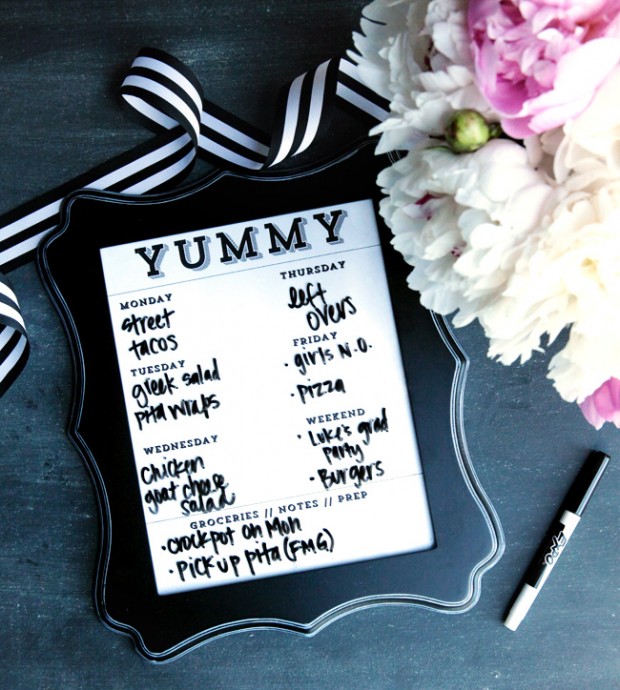 YUMMY
MONDAY
street
tacos
TUESDAY
greek salad
pita wraps
WEDNESDAY
chicken
goat cheese
salad
THURSDAY
left
overs
FRIDAY
• girls N.O.
• pizza
WEEKEND
• Luke's grad
party
• Burgers
GROCERIES // NOTES // PREP
• crockpot on Mon
• pick up pita (FMG)
EXPO